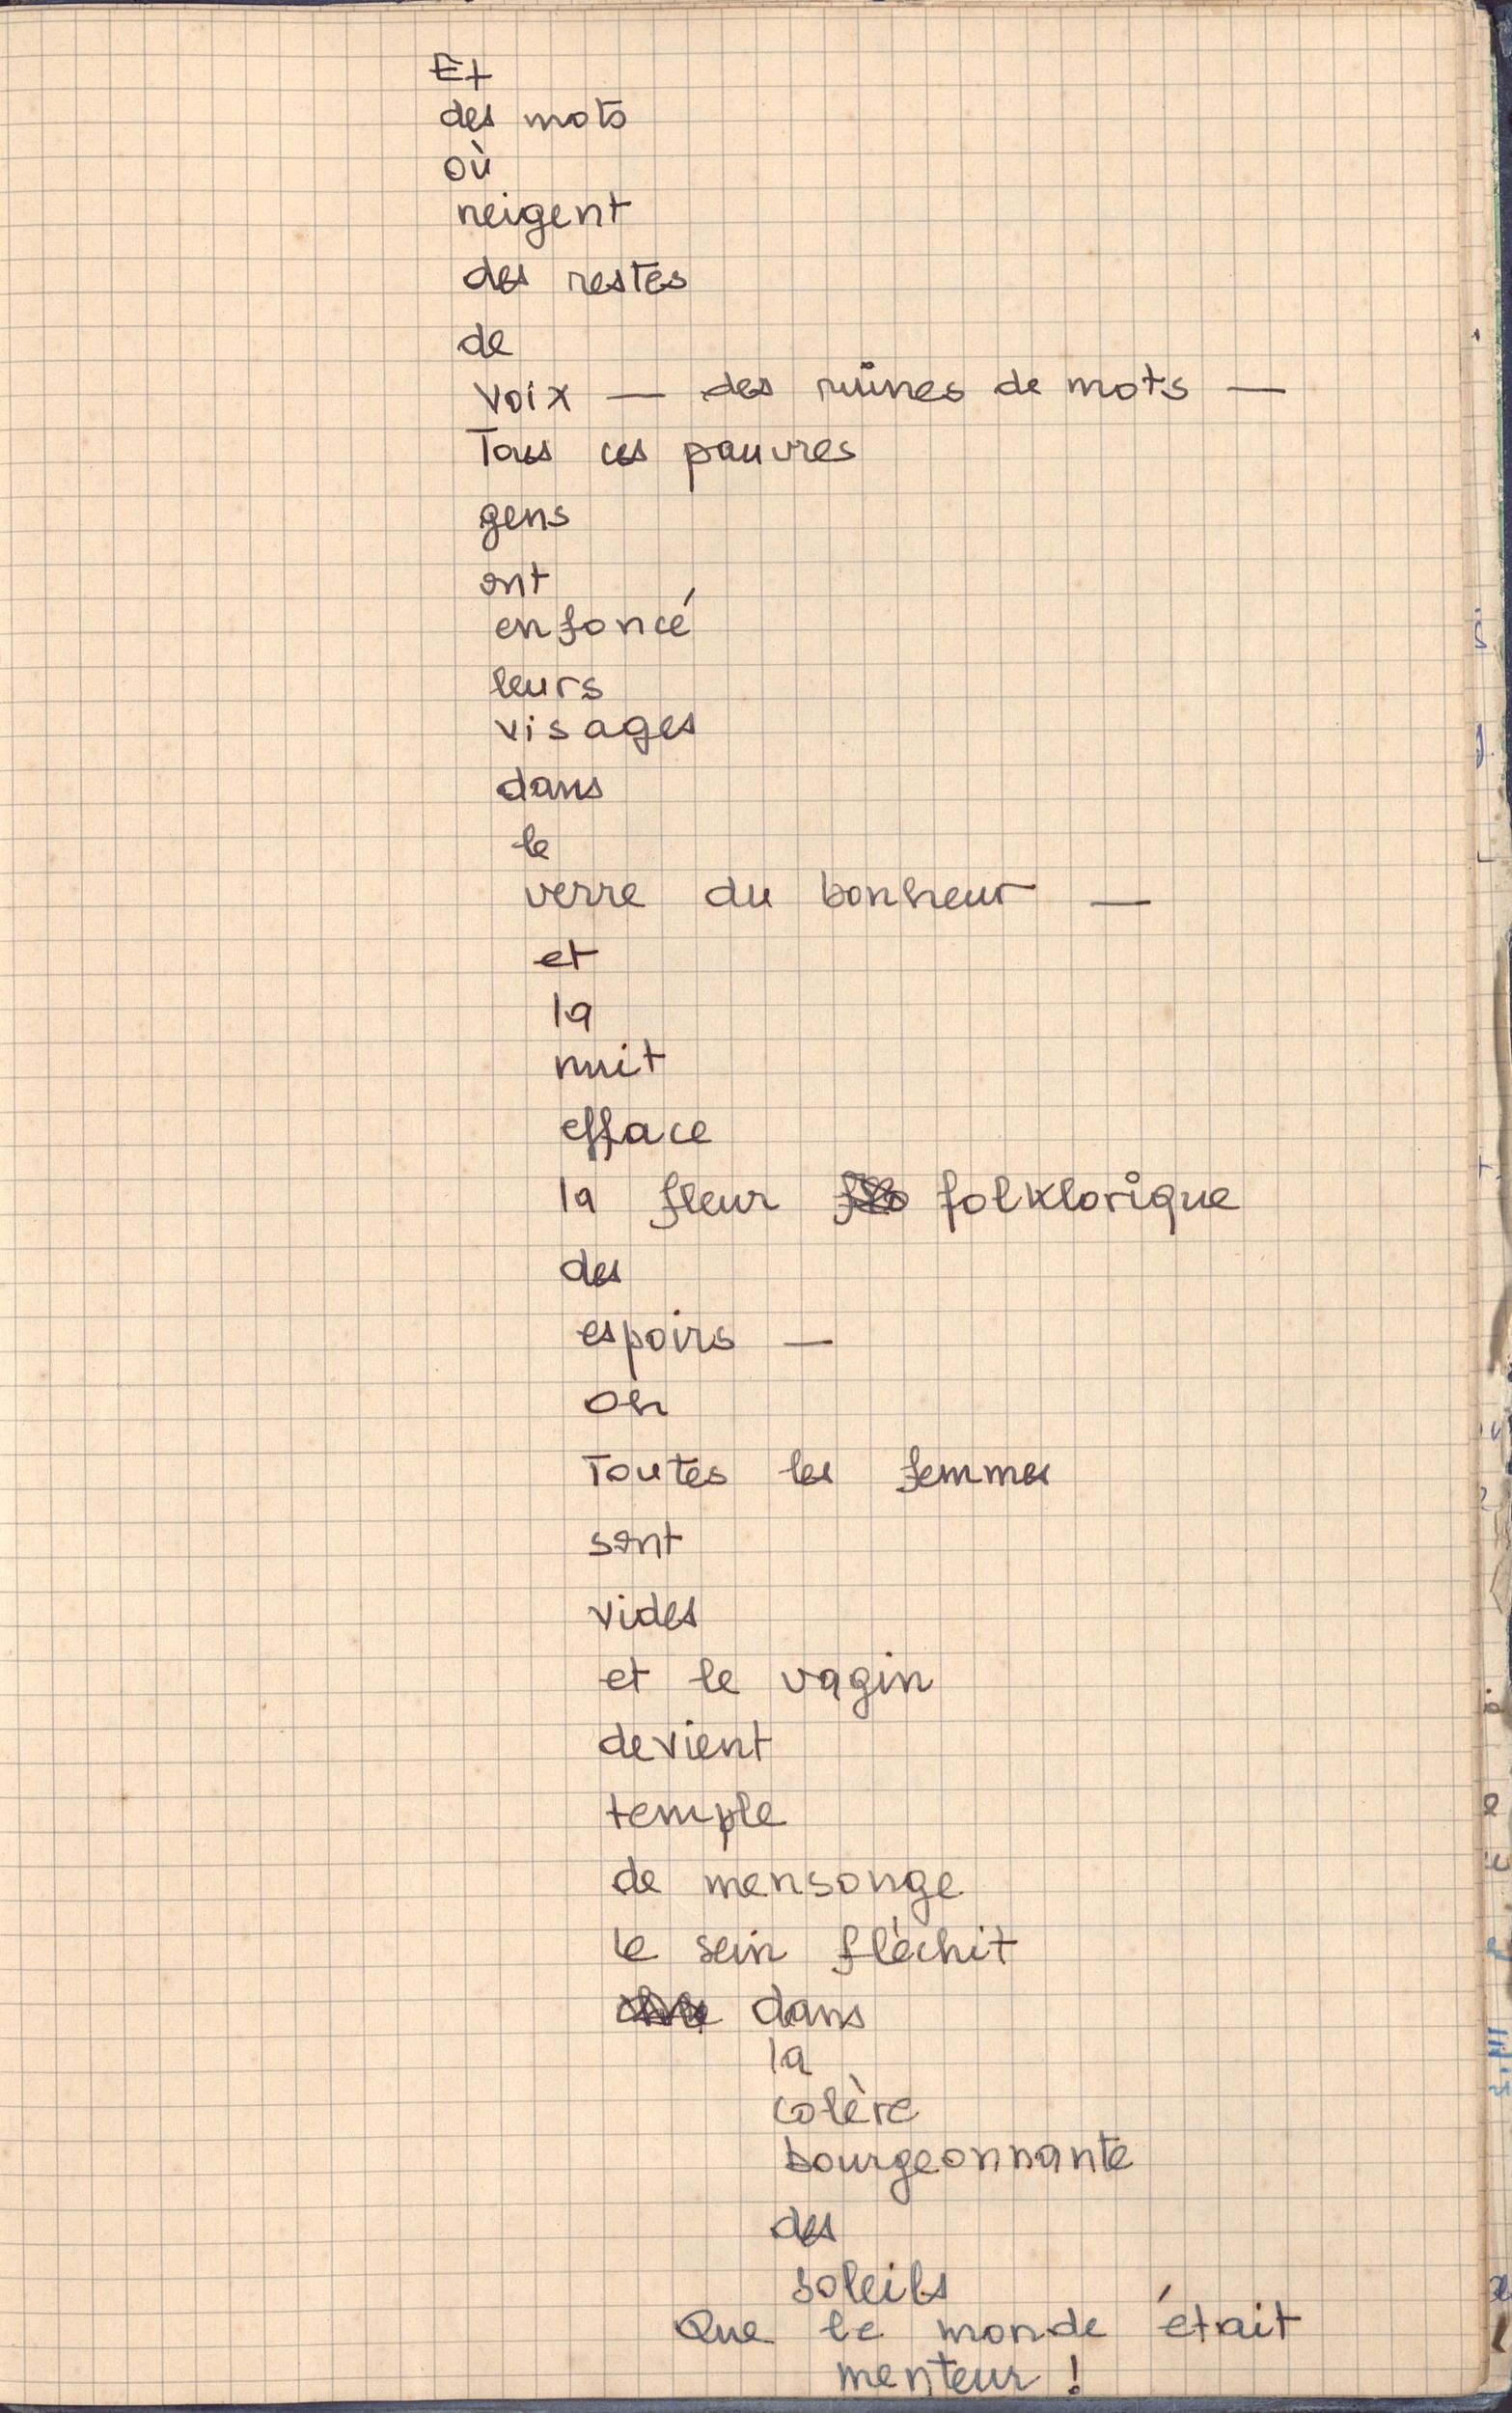 Et
des mots
où
neigent
des restes
de
voix — des ruines de mots —
Tous ces pauvres
gens
ont
enfoncé
leurs
visages
dans
le
verre du bonheur —
et
la
nuit
efface
la fleur folklorique
des
espoirs —
Oh
Toutes les femmes
sont
vides
et le vagin
devient
temple
de mensonge
le sein fléchit
dans
la
colère
bourgeonnante
des
soleils
Que le monde était
menteur !